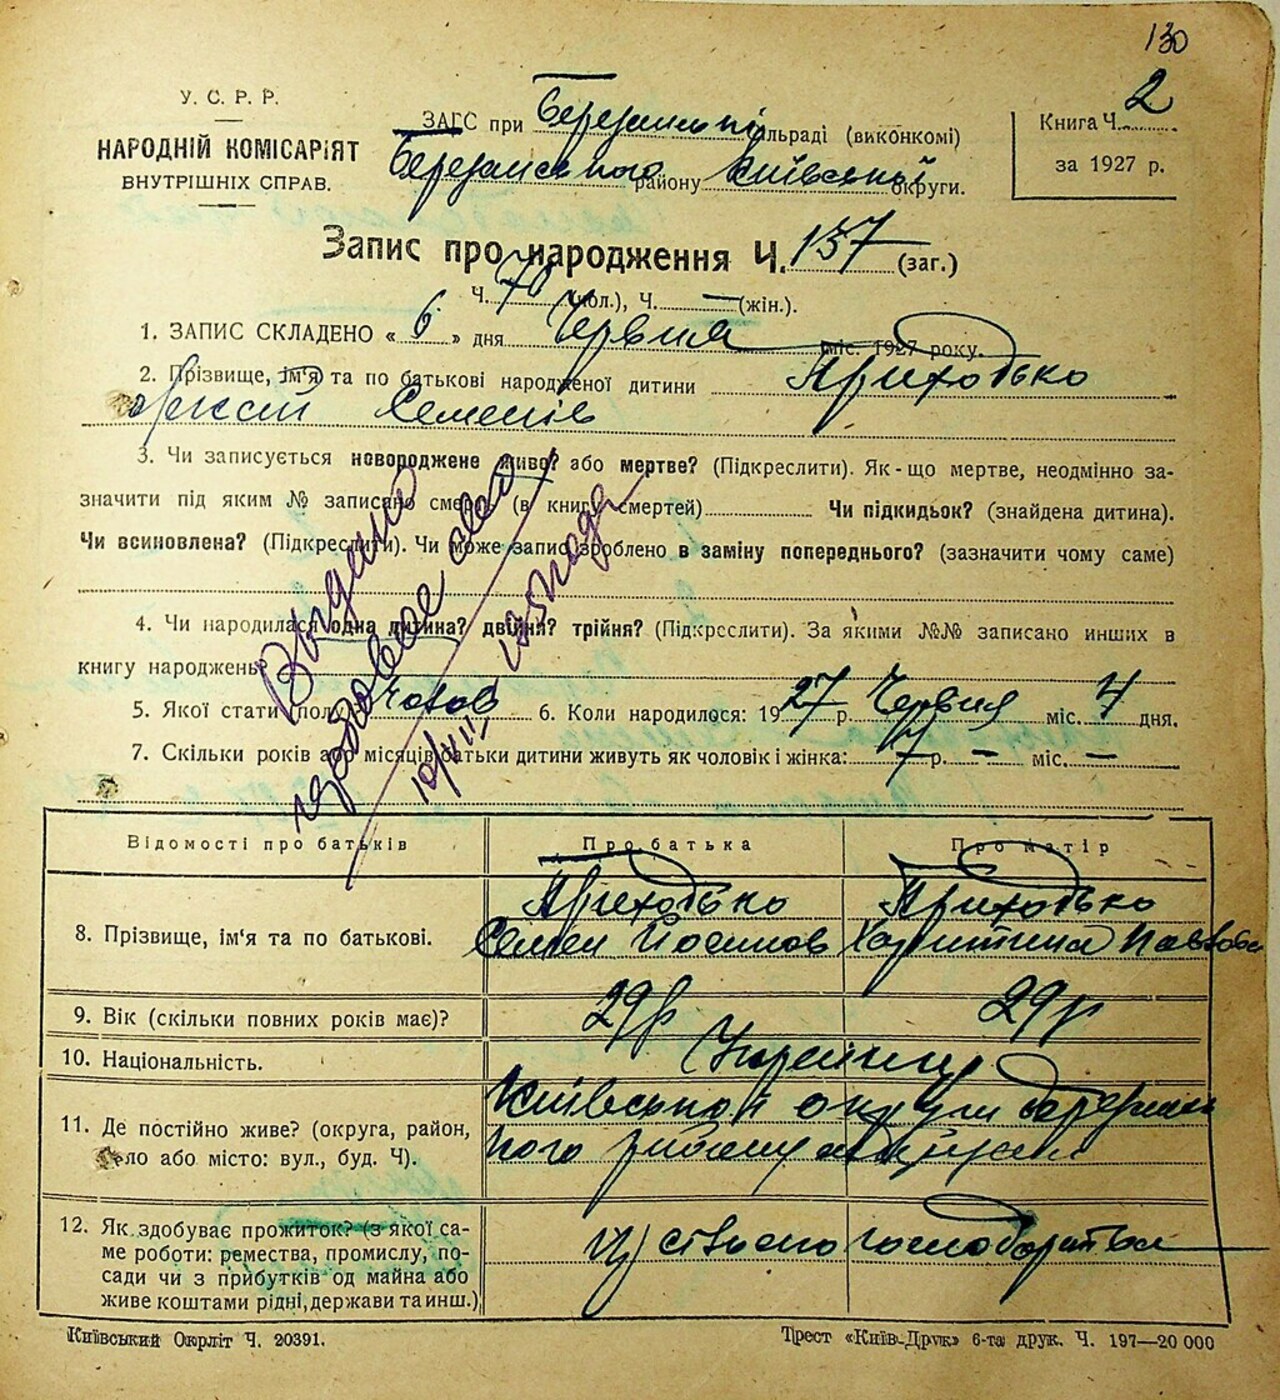 130
У. С. Р. Р.
НАРОДНІЙ КОМІСАРІЯТ
ВНУТРІШНІХ СПРАВ.
ЗАГС при Березанській сільраді (виконкомі)
Березанського району Київської округи.
Книга Ч. 2
за 1927 р.
Запис про народження Ч. 137 (заг.)
Ч. 70 (чол.), Ч. — (жін.).
1. ЗАПИС СКЛАДЕНО « 6 » дня Червня міс. 1927 року.
2. Прізвище, ім'я та по батькові народженої дитини Приходько
Олексій Семенів
3. Чи записується новороджене живо? або мертве? (Підкреслити). Як-що мертве, неодмінно за-
значити під яким № записано смерть (в книгу смертей) Чи підкидьок? (знайдена дитина).
Чи всиновлена? (Підкреслити). Чи може запис зроблено в заміну попереднього? (зазначити чому саме)
4. Чи народилася одна дитина? двійня? трійня? (Підкреслити). За якими №№ записано инших в
книгу народжень?
5. Якої статі (полу) Чолов 6. Коли народилося: 1927 р. Червня міс. 4 дня.
7. Скільки років або місяців батьки дитини живуть як чоловік і жінка: 7 р. — міс. —
Видано
Відомості про батьків Про батька Про матір
8. Прізвище, ім'я та по батькові. Приходько Приходько
Семен Йосипов Харитина Павлова
9. Вік (скільки повних років має)? 29 р 29 р
10. Національність. Українці
11. Де постійно живе? (округа, район, село або місто: вул., буд. Ч). Київської округи Березансь
кого району
12. Як здобуває прожиток? (з якої са-
ме роботи: ремества, промислу, по-
сади чи з прибутків од майна або
живе коштами рідні, держави та инш.)
Київський Окрліт Ч. 20391. Трест «Київ-Друк» 6-та друк. Ч. 197—20 000